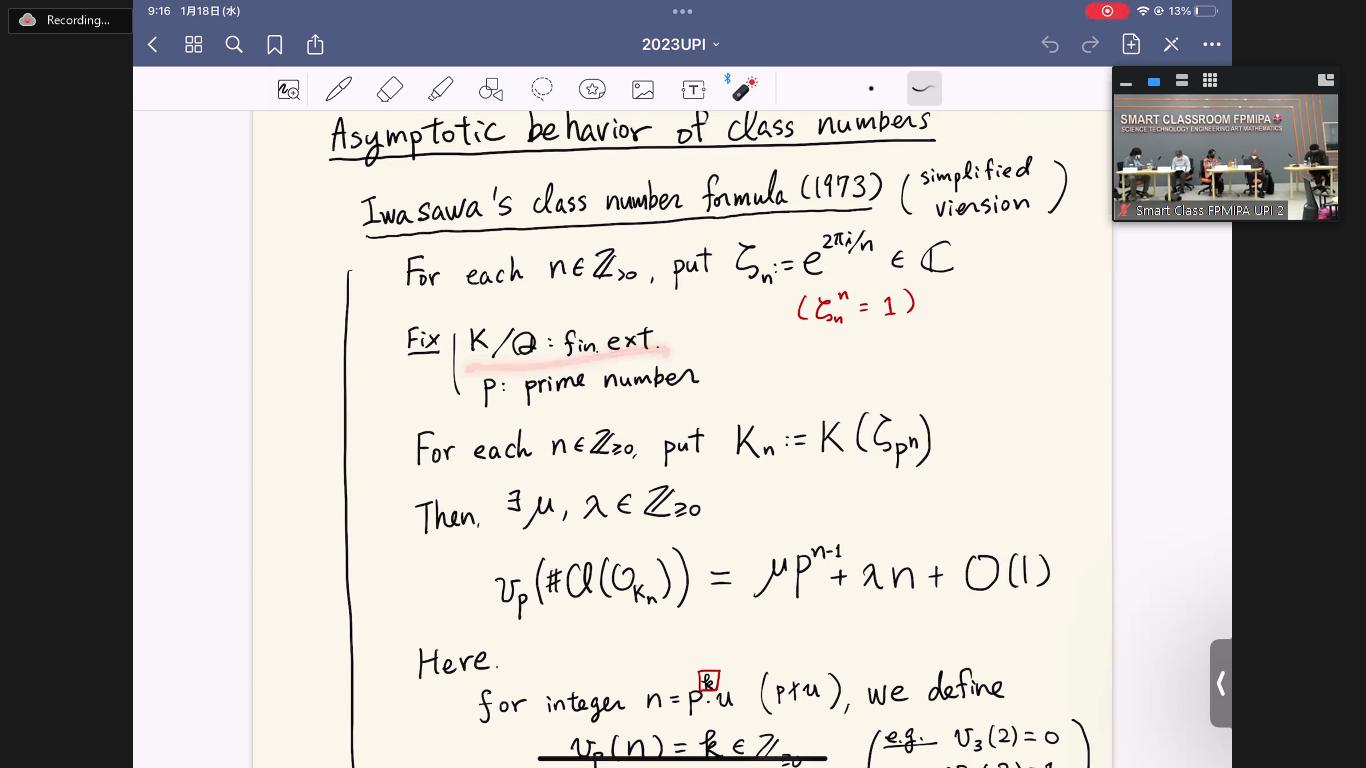 Recording...
9:16 1月18日(水)
13%
2023UPI
SMART CLASSROOM FPMIPA
SCIENCE TECHNOLOGY ENGINEERING ART MATHEMATICS
Smart Class FPMIPA UPI 2
Asymptotic behavior of class numbers
Iwasawa's class number formula (1973) (simplified viersion)
For each n∈ℤ>0, put ζn := e^{2πi/n} ∈ ℂ
(ζn^n = 1)
Fix K/ℚ : fin. ext.
p: prime number
For each n∈ℤ≥0, put Kn := K(ζ_{p^n})
Then, ∃μ, λ ∈ ℤ≥0
v_p(#Cl(O_{K_n})) = μp^{n-1} + λn + O(1)
Here.
for integer n = p^k · u (p∤u), we define
v_p(n) = k ∈ ℤ≥0 (e.g. v_3(2) = 0